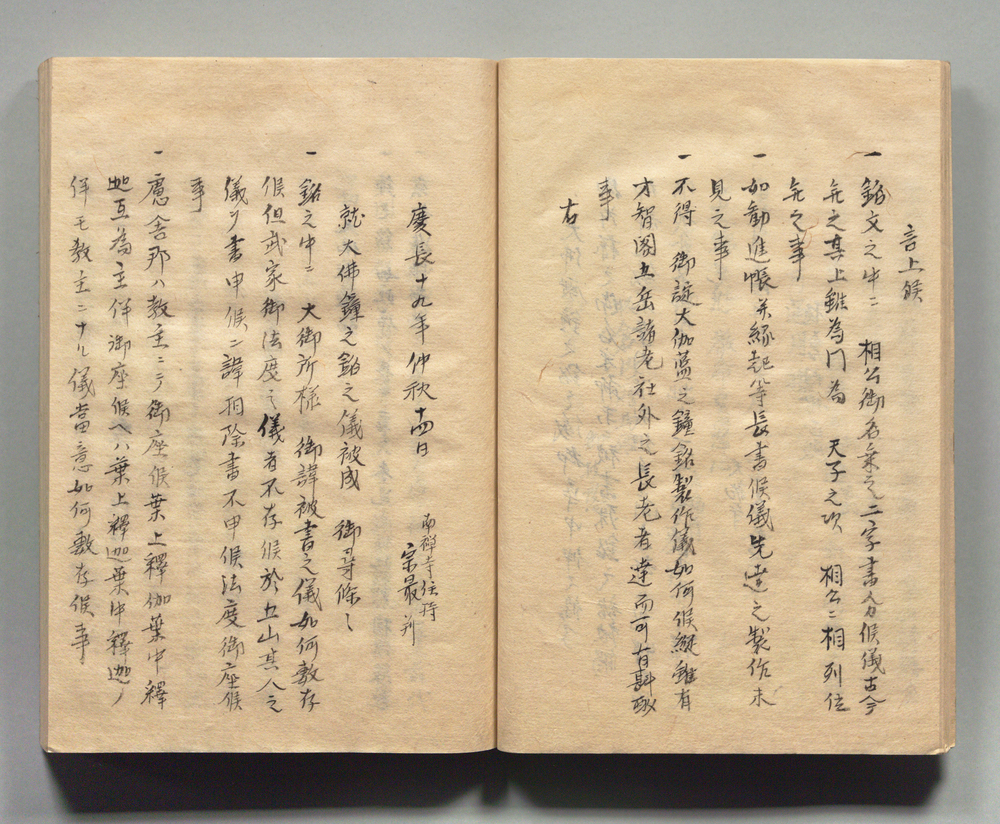 言上候
一 銘文之中ニ 相公御名乗之二字書分候儀古今
無之其上雖為門為 天子之次 相公ニ相列位
無之事
一 如勧進帳并縁起等長書候儀先達之製作未
見之事
一 不得 御諚大伽藍之鐘銘製作儀如何候縦雖有
才智閣五岳諸老社外之長老者達而可有斟酌
事
右
慶長十九年仲秋十四日
南禅寺住持
宗最 判
就大佛鐘之銘之儀被成 御尋條〻
一 銘之中ニ 大御所様 御諱被書之儀如何敷存
候但武家御法度之儀者不存候於五山其人之
儀ヲ書申候ニ諱相除書不申候法度御座候
事
一 盧舎那ハ教主ニテ御座候葉上釋伽葉中釋
迦互為主伴御座候ヘハ葉上釋迦葉中釋迦ノ
伴モ教主ニナル儀當意如何敷存候事